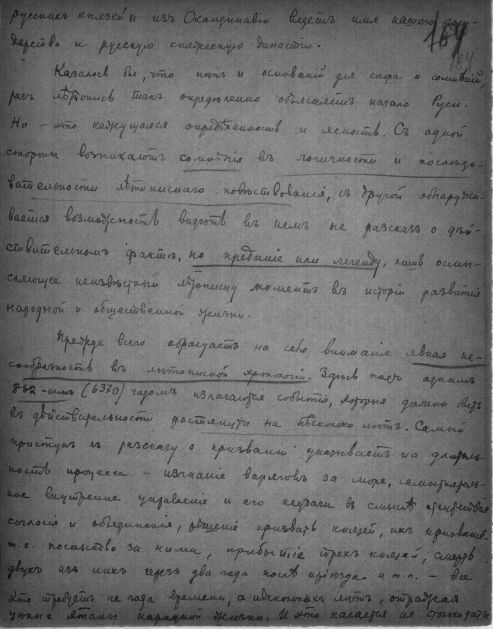 русскихъ князей и изъ Скандинавіи ведетъ имя нашего госу-
дарство и русскую княжескую династію.
164
Казалось бы, что нѣтъ и основаній для спора и сомнѣній,
разъ лѣтопись такъ опредѣленно объясняетъ начало Руси.
Но – это кажущаяся опредѣленность и ясность. Съ одной
стороны возникаютъ сомнѣнія въ логичности и послѣдо-
вательности лѣтописнаго повѣствованія, съ другой обнаружи-
вается возможность видѣть въ немъ не разсказъ о дѣй-
ствительномъ фактѣ, но преданіе или легенду, лишь осмы-
сляющее неизвѣстный лѣтописцу моментъ въ исторіи развитія
народной и общественной жизни.
Прежде всего обращаетъ на себя вниманіе явная не-
сообразность въ лѣтописной хронологіи. Здѣсь подъ однимъ
862-ымъ (6370) годомъ излагаются событія, которыя должны быть
въ дѣйствительности растянуты на нѣсколько лѣтъ. Самый
приступъ къ разсказу о призваніи указываетъ на длитель-
ность процесса – изгнаніе варяговъ за море, самостоятель-
ное внутреннее управленіе и его неудачи въ смыслѣ отсутствія
согласія и объединенія, рѣшеніе призвать князей, ихъ призваніе
т.е. посольство за ними, прибытіе трехъ князей, смерть
двухъ изъ нихъ черезъ два года послѣ пріѣзда и т.п. – все
это требуетъ не года времени, а нѣсколькихъ лѣтъ, отражая
цѣлые этапы народной жизни. И это касается не